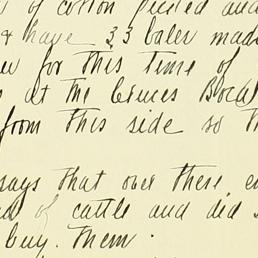 of cotton picked and
& have 33 bales made
for this time of
at the Bocal
from this side so th
says that over there, e
of cattle and did
buy. them.